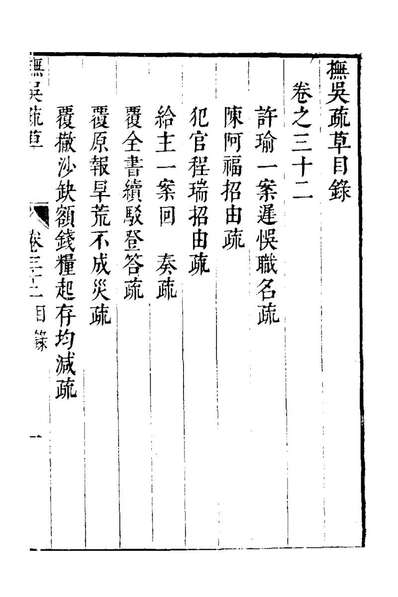 撫吳疏草目錄
卷之三十二
許瑜一案遲悞職名疏
陳阿福招由疏
犯官程瑞招由疏
給主一案回　奏疏
覆全書續駁登答疏
覆原報旱荒不成災疏
覆撤沙缺額錢糧起存均減疏
撫吳疏草
卷三十二目錄
一